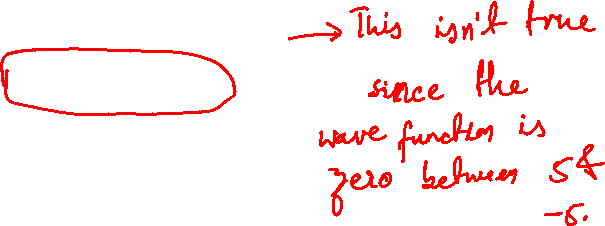 → This isn't true
since the
wave function is
zero between 5 &
-5.